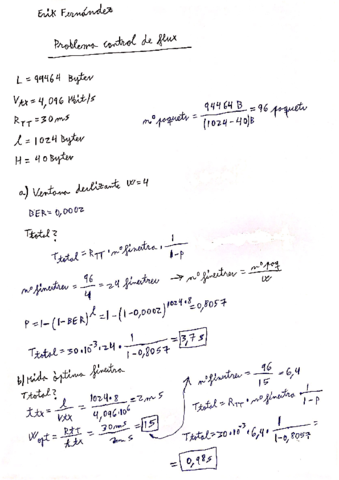 Erik Fernández
Problema control de flux
L = 94464 Bytes
Vtx = 4,096 Mbit/s
RTT = 30 ms
l = 1024 Bytes
H = 40 Bytes
nº paquets = 94464 B / (1024-40)B = 96 paquets
a) Ventana deslizante W=4
BER = 0,0002
Ttotal?
Ttotal = RTT · nº finestres · 1 / 1-P
nº finestres = 96 / 4 = 24 finestres → nº finestres = nº paq / W
P = 1-(1-BER)^l = 1-(1-0,0002)^1024·8 = 0,8057
Ttotal = 30·10^-3 · 24 · 1 / 1-0,8057 = 3,7 s
b) Mida òptima finestra
Ttotal?
ttx = l / Vtx = 1024·8 / 4,096·10^6 = 2 ms
Wopt = RTT / ttx = 30ms / 2ms = 15
nº finestres = 96 / 15 = 6,4
Ttotal = RTT · nº finestres · 1 / 1-P
Ttotal = 30·10^-3 · 6,4 · 1 / 1-0,8057 =
= 0,98s